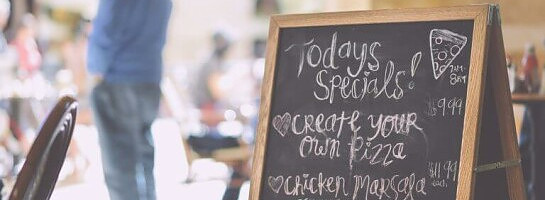 Todays
Specials!
Create your $9.99
own Pizza
Chicken Marsala $11.99